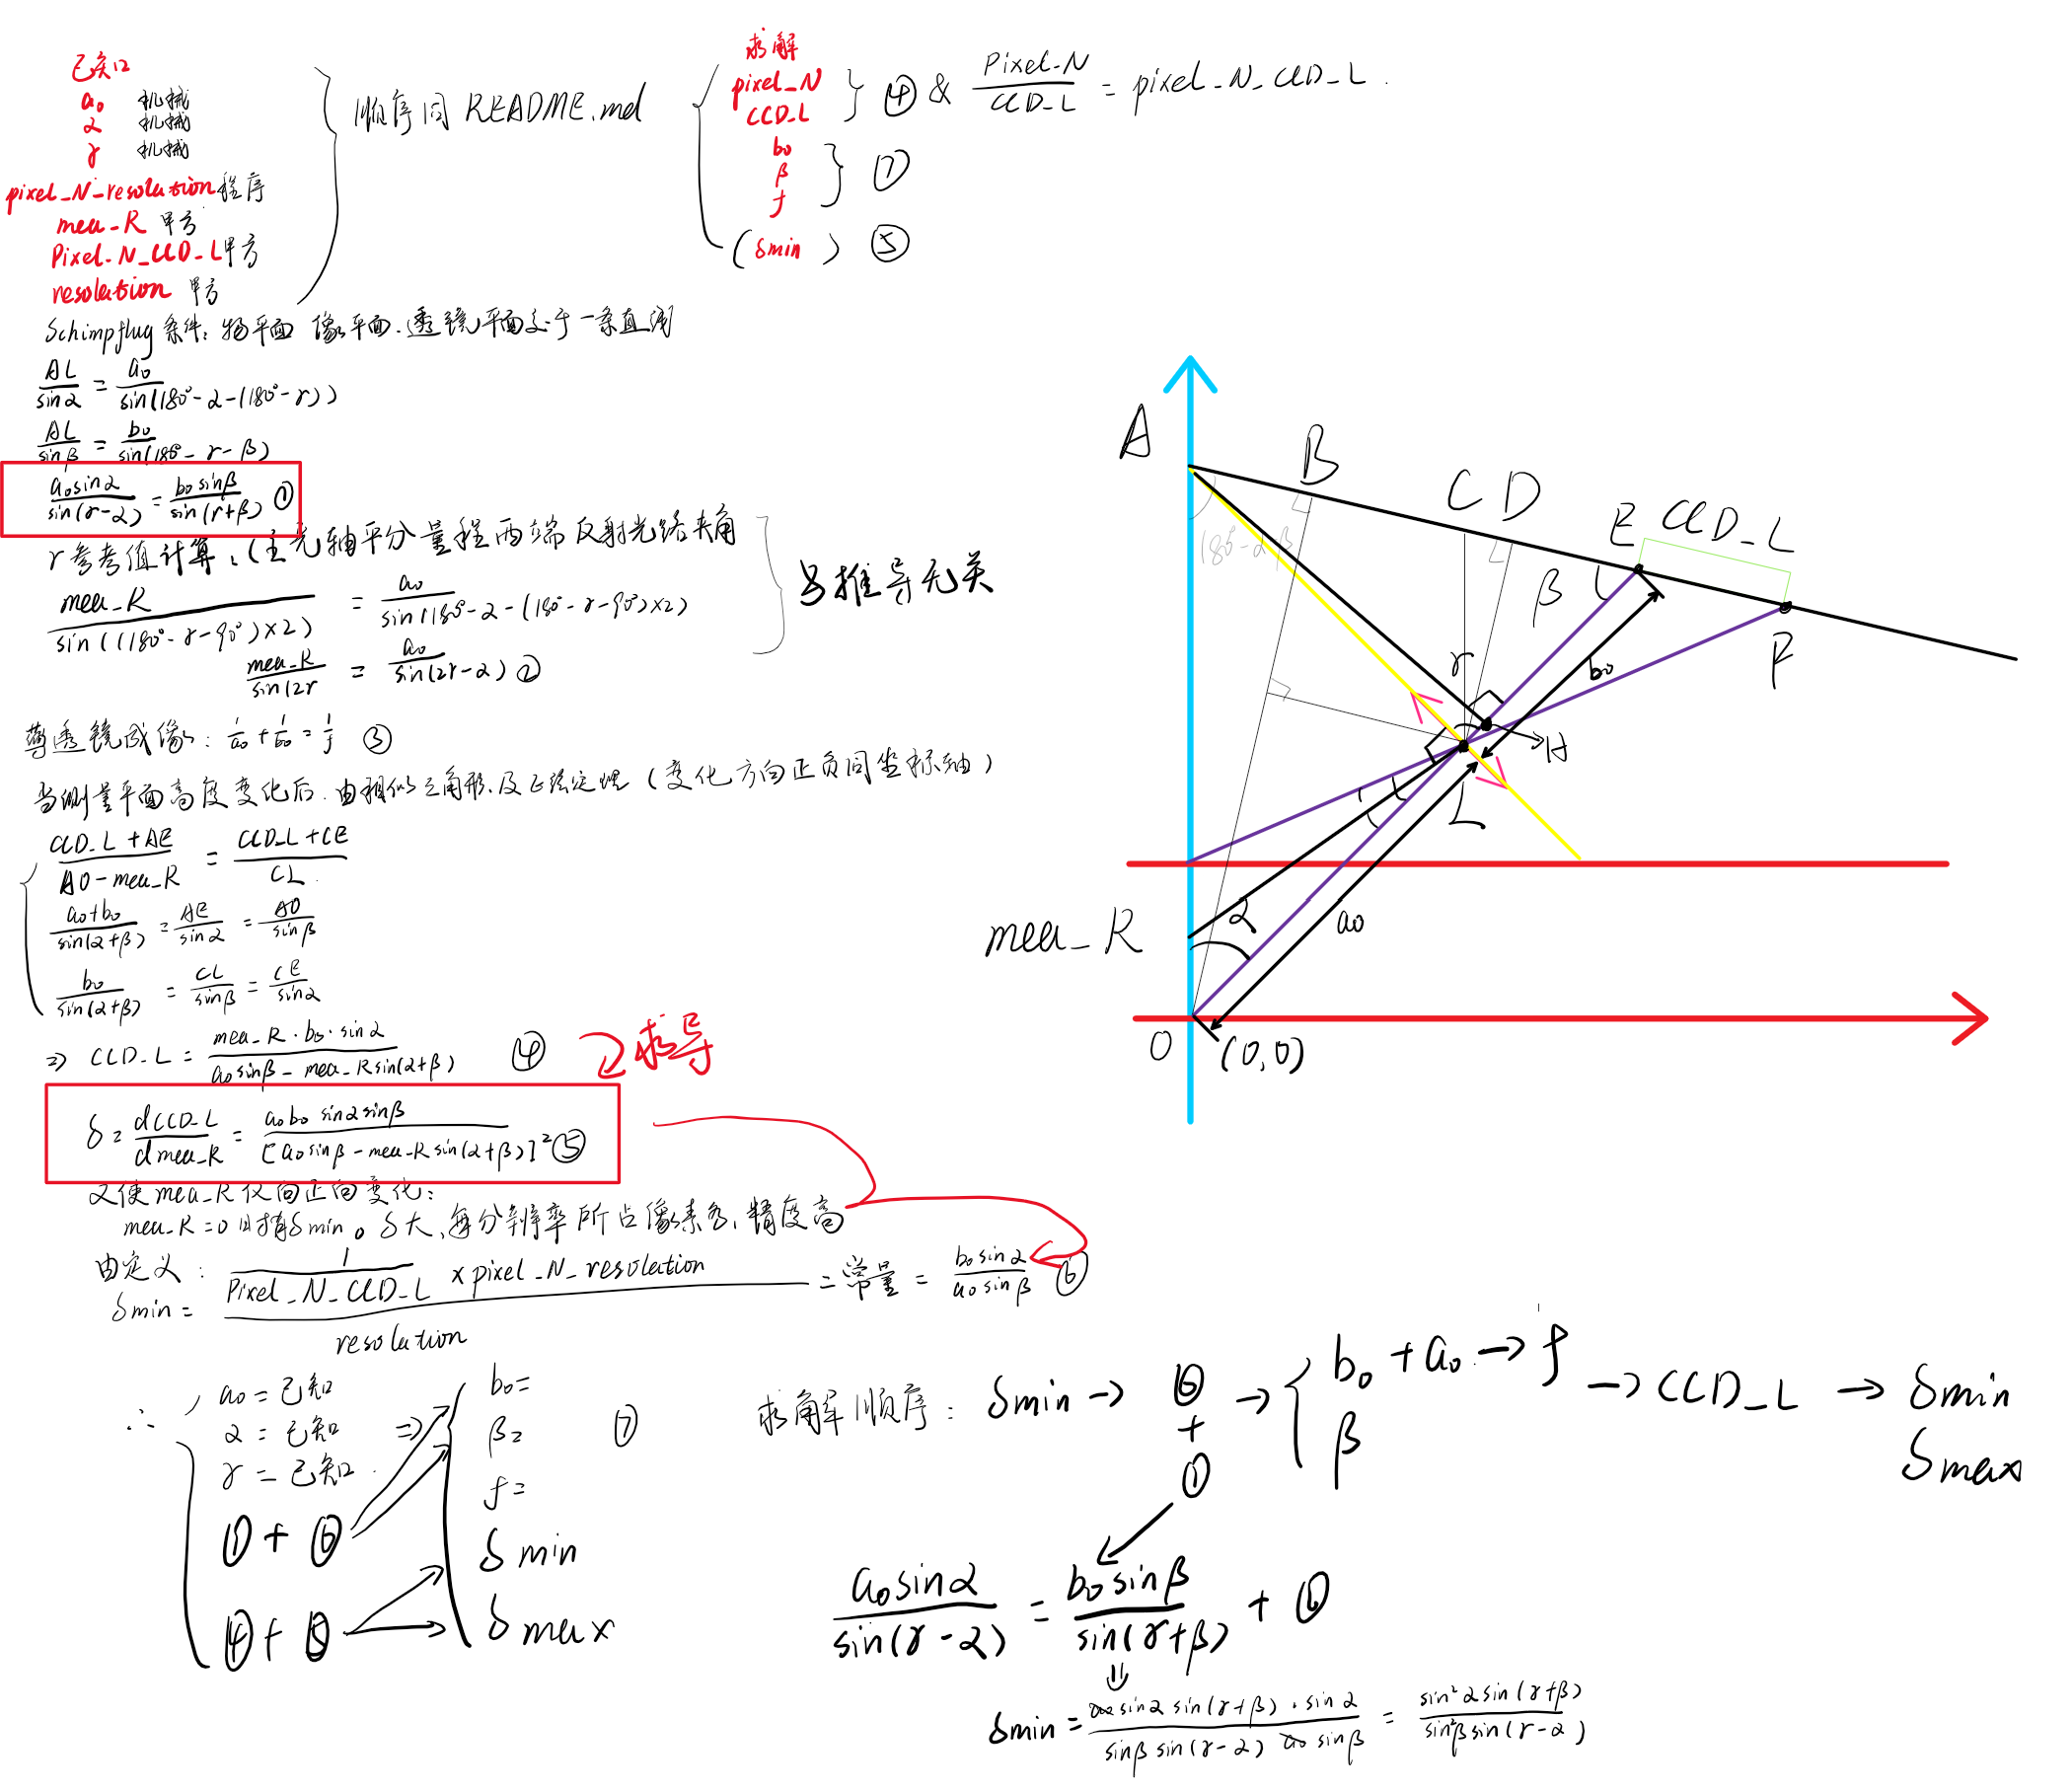 已知
a₀ 机械
α 机械
γ 机械
pixel_N_resolution 程序
mea_R 甲方
Pixel_N_CCD_L 甲方
resolution 甲方
顺序同 README.md
求解
pixel_N
CCD_L
④ & Pixel_N / CCD_L = pixel_N_CCD_L.
b₀
β
f
⑦
(δmin) ⑤
Schimpflug 条件: 物平面 像平面. 透镜平面交于一条直线
AL / sinα = a₀ / sin(180°-α-(180°-γ))
AL / sinβ = b₀ / sin(180°-γ-β)
a₀sinα / sin(γ-α) = b₀sinβ / sin(γ+β) ①
γ参考值计算: (主光轴平分量程两端反射光路夹角
mea_R / sin((180°-γ-90°)×2) = a₀ / sin(180°-α-(180°-γ-90°)×2)
mea_R / sin(2γ = a₀ / sin(2γ-α) ②
与推导无关
薄透镜成像: 1/a₀ + 1/b₀ = 1/f ③
当测量平面高度变化后. 由相似三角形.及正弦定理 (变化方向正负同坐标轴)
CCD_L+AE / AO-mea_R = CCD_L+CE / CL
a₀+b₀ / sin(α+β) = AE / sinα = AO / sinβ
b₀ / sin(α+β) = CL / sinβ = CE / sinα
⇒ CCD_L = mea_R·b₀·sinα / a₀sinβ - mea_R sin(α+β) ④
求导
δ = dCCD_L / dmea_R = a₀b₀ sinα sinβ / [a₀sinβ - mea_R sin(α+β)]² ⑤
又使mea_R仅向正向变化:
mea_R=0时有δmin。δ大、每分辨率所占像素多、精度高
由定义:
δmin = 1 / Pixel_N_CCD_L × pixel_N_resolution / resolution = 常量 = b₀sinα / a₀sinβ ⑥
∴ a₀ = 已知
α = 已知 ⇒
γ = 已知.
①+⑥
④+⑤
b₀=
β=
f=
δ min
δ max
⑦
求解顺序: δmin → ⑥ + ① → b₀ + a₀ → f
β
→ CCD_L → δmin
δmax
a₀sinα / sin(γ-α) = b₀sinβ / sin(γ+β) + ⑥
⇓
δmin = a₀ sinα sin(γ+β)·sinα / sinβ sin(γ-α) a₀ sinβ = sin²α sin(γ+β) / sin²β sin(γ-α)
A
B
C
D
E
CCD_L
F
β
γ
b₀
H
L
α
a₀
mea_R
O
(0,0)